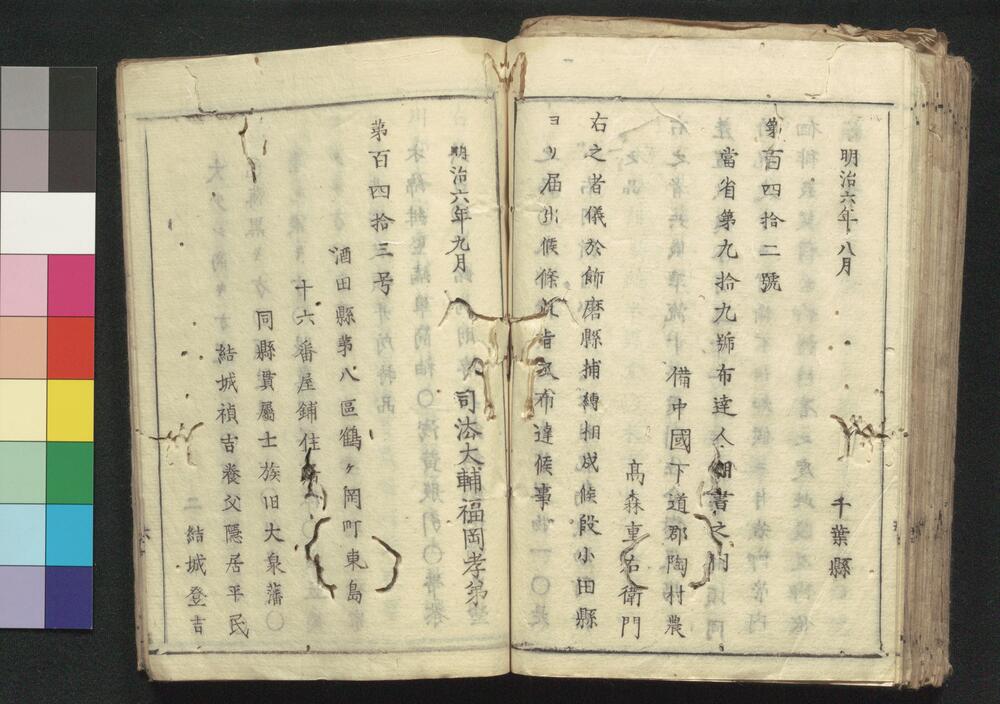 明治六年八月　千葉縣
第百四拾二號
當省第九拾九號布達人相書之内
備中國下道郡陶村農
髙森重右衛門
右之者儀於飾磨縣捕縛相成候段小田縣
ヨリ届出候條此旨更布達候事
明治六年九月　司法大輔福岡孝弟
第百四拾三号
酒田縣第八區鶴ヶ岡町東島
十六番屋鋪住
同縣貫屬士族旧大泉藩〇
結城禎吉養父隠居平民
結城登吉